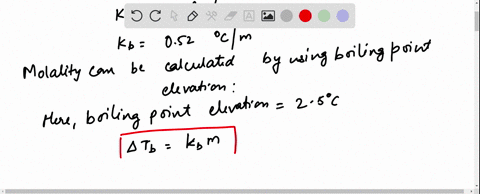 K
Kb = 0.52 °C/m
Molality can be calculated by using boiling point
elevation:
Here, boiling point elevation = 2.5°C
ΔTb = kb m